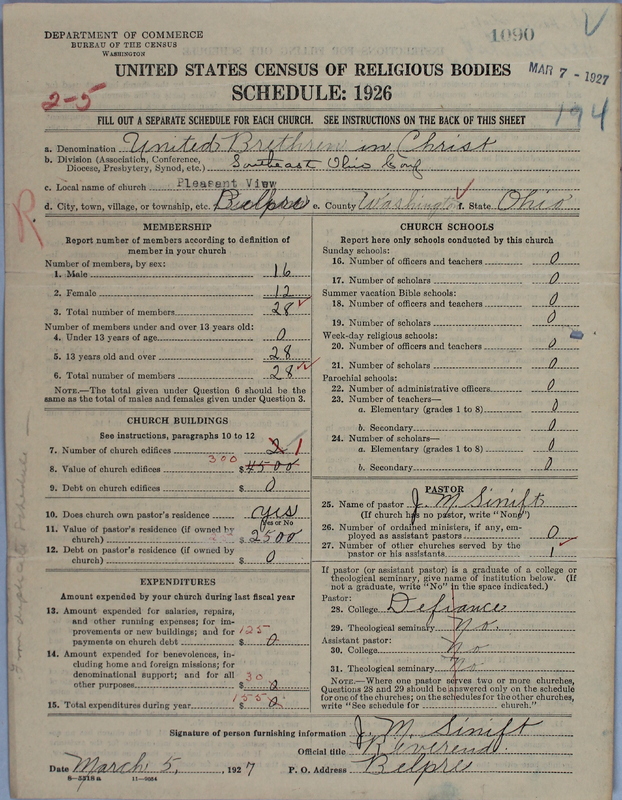 DEPARTMENT OF COMMERCE
BUREAU OF THE CENSUS
WASHINGTON
1090
MAR 7 - 1927
UNITED STATES CENSUS OF RELIGIOUS BODIES
SCHEDULE: 1926
2-5
194
FILL OUT A SEPARATE SCHEDULE FOR EACH CHURCH. SEE INSTRUCTIONS ON THE BACK OF THIS SHEET
a. Denomination United Brethren in Christ
b. Division (Association, Conference, Diocese, Presbytery, Synod, etc.) Southeast Ohio Conf
c. Local name of church Pleasant View
d. City, town, village, or township, etc. Belpre e. County Washington f. State Ohio
R
MEMBERSHIP
Report number of members according to definition of
member in your church
Number of members, by sex:
1. Male 16
2. Female 12
3. Total number of members 28
Number of members under and over 13 years old:
4. Under 13 years of age 0
5. 13 years old and over 28
6. Total number of members 28
NOTE.—The total given under Question 6 should be the
same as the total of males and females given under Question 3.
CHURCH BUILDINGS
See instructions, paragraphs 10 to 12
7. Number of church edifices 2 1
8. Value of church edifices 300 $4500
9. Debt on church edifices $ 0
10. Does church own pastor's residence yes
(Yes or No)
11. Value of pastor's residence (if owned by
church) $ 2500
12. Debt on pastor's residence (if owned by
church) $ 0
EXPENDITURES
Amount expended by your church during last fiscal year
13. Amount expended for salaries, repairs,
and other running expenses; for im-
provements or new buildings; and for
payments on church debt 125 $ 0
14. Amount expended for benevolences, in-
cluding home and foreign missions; for
denominational support; and for all
other purposes 30 $
15. Total expenditures during year 155 $ 0
CHURCH SCHOOLS
Report here only schools conducted by this church
Sunday schools:
16. Number of officers and teachers 0
17. Number of scholars 0
Summer vacation Bible schools:
18. Number of officers and teachers 0
19. Number of scholars 0
Week-day religious schools:
20. Number of officers and teachers 0
21. Number of scholars 0
Parochial schools:
22. Number of administrative officers 0
23. Number of teachers—
a. Elementary (grades 1 to 8) 0
b. Secondary 0
24. Number of scholars—
a. Elementary (grades 1 to 8) 0
b. Secondary 0
PASTOR
25. Name of pastor J. M. Sinift
(If church has no pastor, write "None")
26. Number of ordained ministers, if any, em-
ployed as assistant pastors 0
27. Number of other churches served by the
pastor or his assistants 1
If pastor (or assistant pastor) is a graduate of a college or
theological seminary, give name of institution below. (If
not a graduate, write "No" in the space indicated.)
Pastor:
28. College Defiance
29. Theological seminary No.
Assistant pastor:
30. College No
31. Theological seminary No
NOTE.—Where one pastor serves two or more churches,
Questions 28 and 29 should be answered only on the schedule
for one of the churches; on the schedules for the other churches,
write "See schedule for church."
Signature of person furnishing information J. M. Sinift
Official title Reverend.
Date March 5, 1927 P. O. Address Belpre
8-5318a 11-9664
From duplicate schedule —